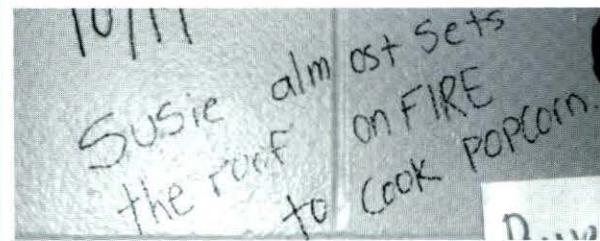 10/11
Susie almost sets
the roof on FIRE
to Cook POPCorn.